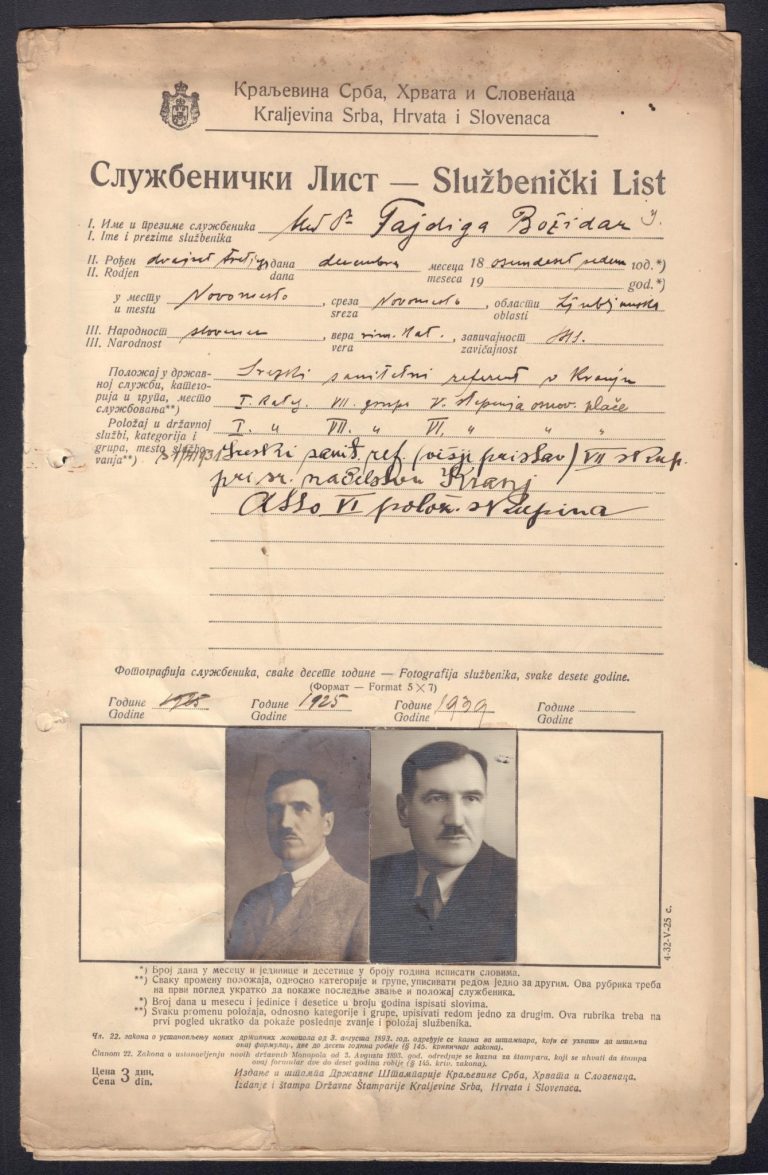 Краљевина Срба, Хрвата и Словенаца
Kraljevina Srba, Hrvata i Slovenaca
Службенички Лист — Službenički List
I. Име и презиме службеника Med Dr Fajdiga Božidar
I. Ime i prezime službenika
II. Рођен dvajset tretjega дана decembra месеца 18 osemdeset sedem год.*)
II. Rodjen dana meseca 19 god.*)
у месту Novomesto, среза Novomesto, области Ljubljanska
u mestu sreza oblasti
III. Народност slovenec, вера rim. kat., завичајност
III. Narodnost vera zavičajnost
Положај у држав- Sreski sanitetni referent v Kranju
ној служби, катего-
рија и група, место I. kateg. VII. grupa V. stepenja osnov. plače
службовања**)
Položaj u državnoj I. " VII. " VI. " " "
službi, kategorija i
grupa, mesto službo- Sreski sanit. ref. (višji pristav) VII skup.
vanja**)
pri sr. načelstvu Kranj
VI polož. skupina
Фотографија службеника, сваке десете године — Fotografija službenika, svake desete godine.
(Формат — Format 5 X 7)
Године 1925 Године 1925 Године 1939 Године
Godine Godine Godine Godine
4-32-V-25 с.
*) Број дана у месецу и јединице и десетице у броју година исписати словима.
**) Сваку промену положаја, односно категорије и групе, уписивати редом једно за другим. Ова рубрика треба
на први поглед укратко да покаже последње звање и положај службеника.
*) Broj dana u mesecu i jedinice i desetice u broju godina ispisati slovima.
**) Svaku promenu položaja, odnosno kategorije i grupe, upisivati redom jedno za drugim. Ova rubrika treba na
prvi pogled ukratko da pokaže poslednje zvanje i položaj službenika.
Чл. 22. закона о установљењу нових државних монопола од 3. августа 1893. год. одређује се казна за штампара, који се ухвати да штампа
овај формулар, две до десет година робије (§ 145. кривичног закона).
Članom 22. Zakona o ustanovljenju novih državnih Monopola od 3. Avgusta 1893. god. odredjuje se kazna za štampara, koji se uhvati da štampa
ovaj formular dve do deset godina robije (§ 145. kriv. zakona).
Цена 3 дин. Издање и штампа Државне Штампарије Краљевине Срба, Хрвата и Словенаца.
Cena din. Izdanje i štampa Državne Štamparije Kraljevine Srba, Hrvata i Slovenaca.